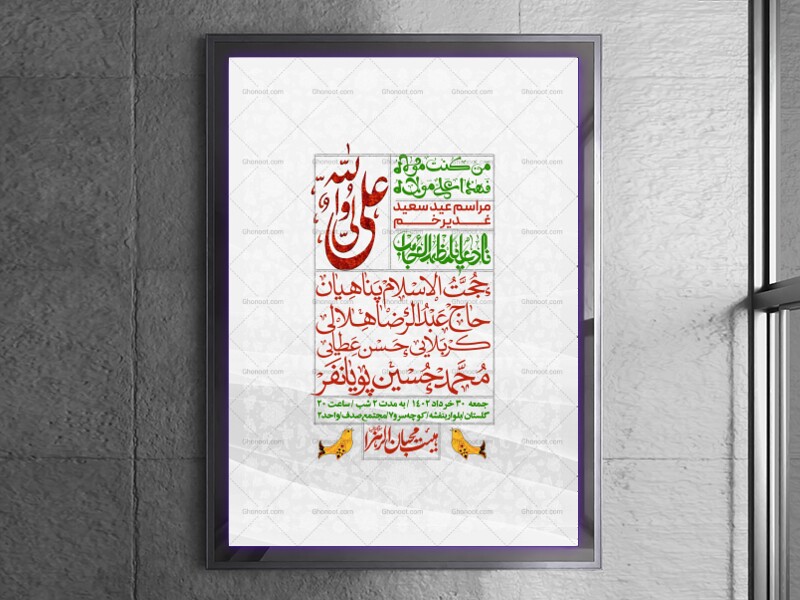 علی ولی الله
من کنت مولاه
فهذا علی مولاه
مراسم عید سعید
غدیر خم
ناد علیا مظهر العجائب
حجت الاسلام پناهیان
حاج عبدالرضا هلالی
کربلایی حسن عطایی
محمدحسین پویانفر
جمعه ۳۰ خرداد ۱۴۰۲ / به مدت ۲ شب / ساعت ۲۰
گلستان/بلوار بنفشه/کوچه سرو۷/مجتمع صدف/واحد۲
هیئت محبان الزهرا
Ghonoot.com